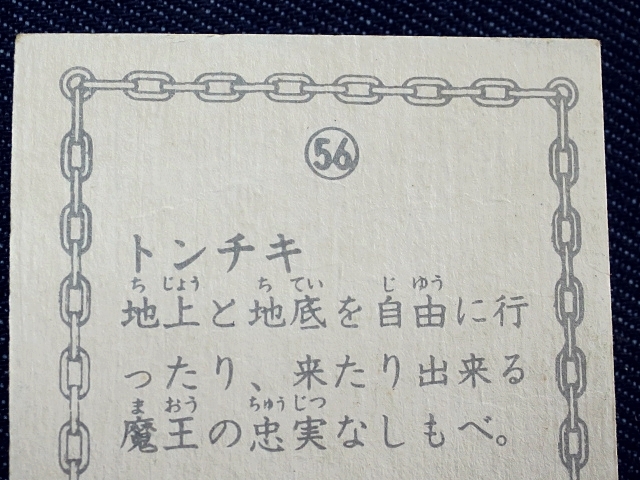 56
トンチキ
地上と地底を自由に行
ったり、来たり出来る
魔王の忠実なしもべ。